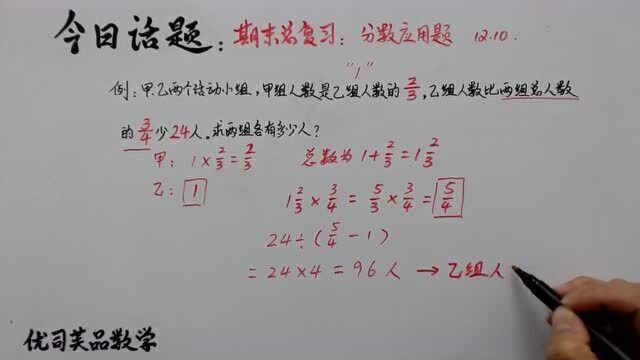 今日话题：期末总复习：分数应用题 12.10.
"1"
例：甲、乙两个活动小组，甲组人数是乙组人数的2/3，乙组人数比两组总人数
的3/4少24人。求两组各有多少人？
甲：1×2/3=2/3 总数为 1+2/3=1 2/3
乙：1
1 2/3×3/4=5/3×3/4=5/4
24÷(5/4-1)
=24×4=96人 → 乙组人
优司芙品数学